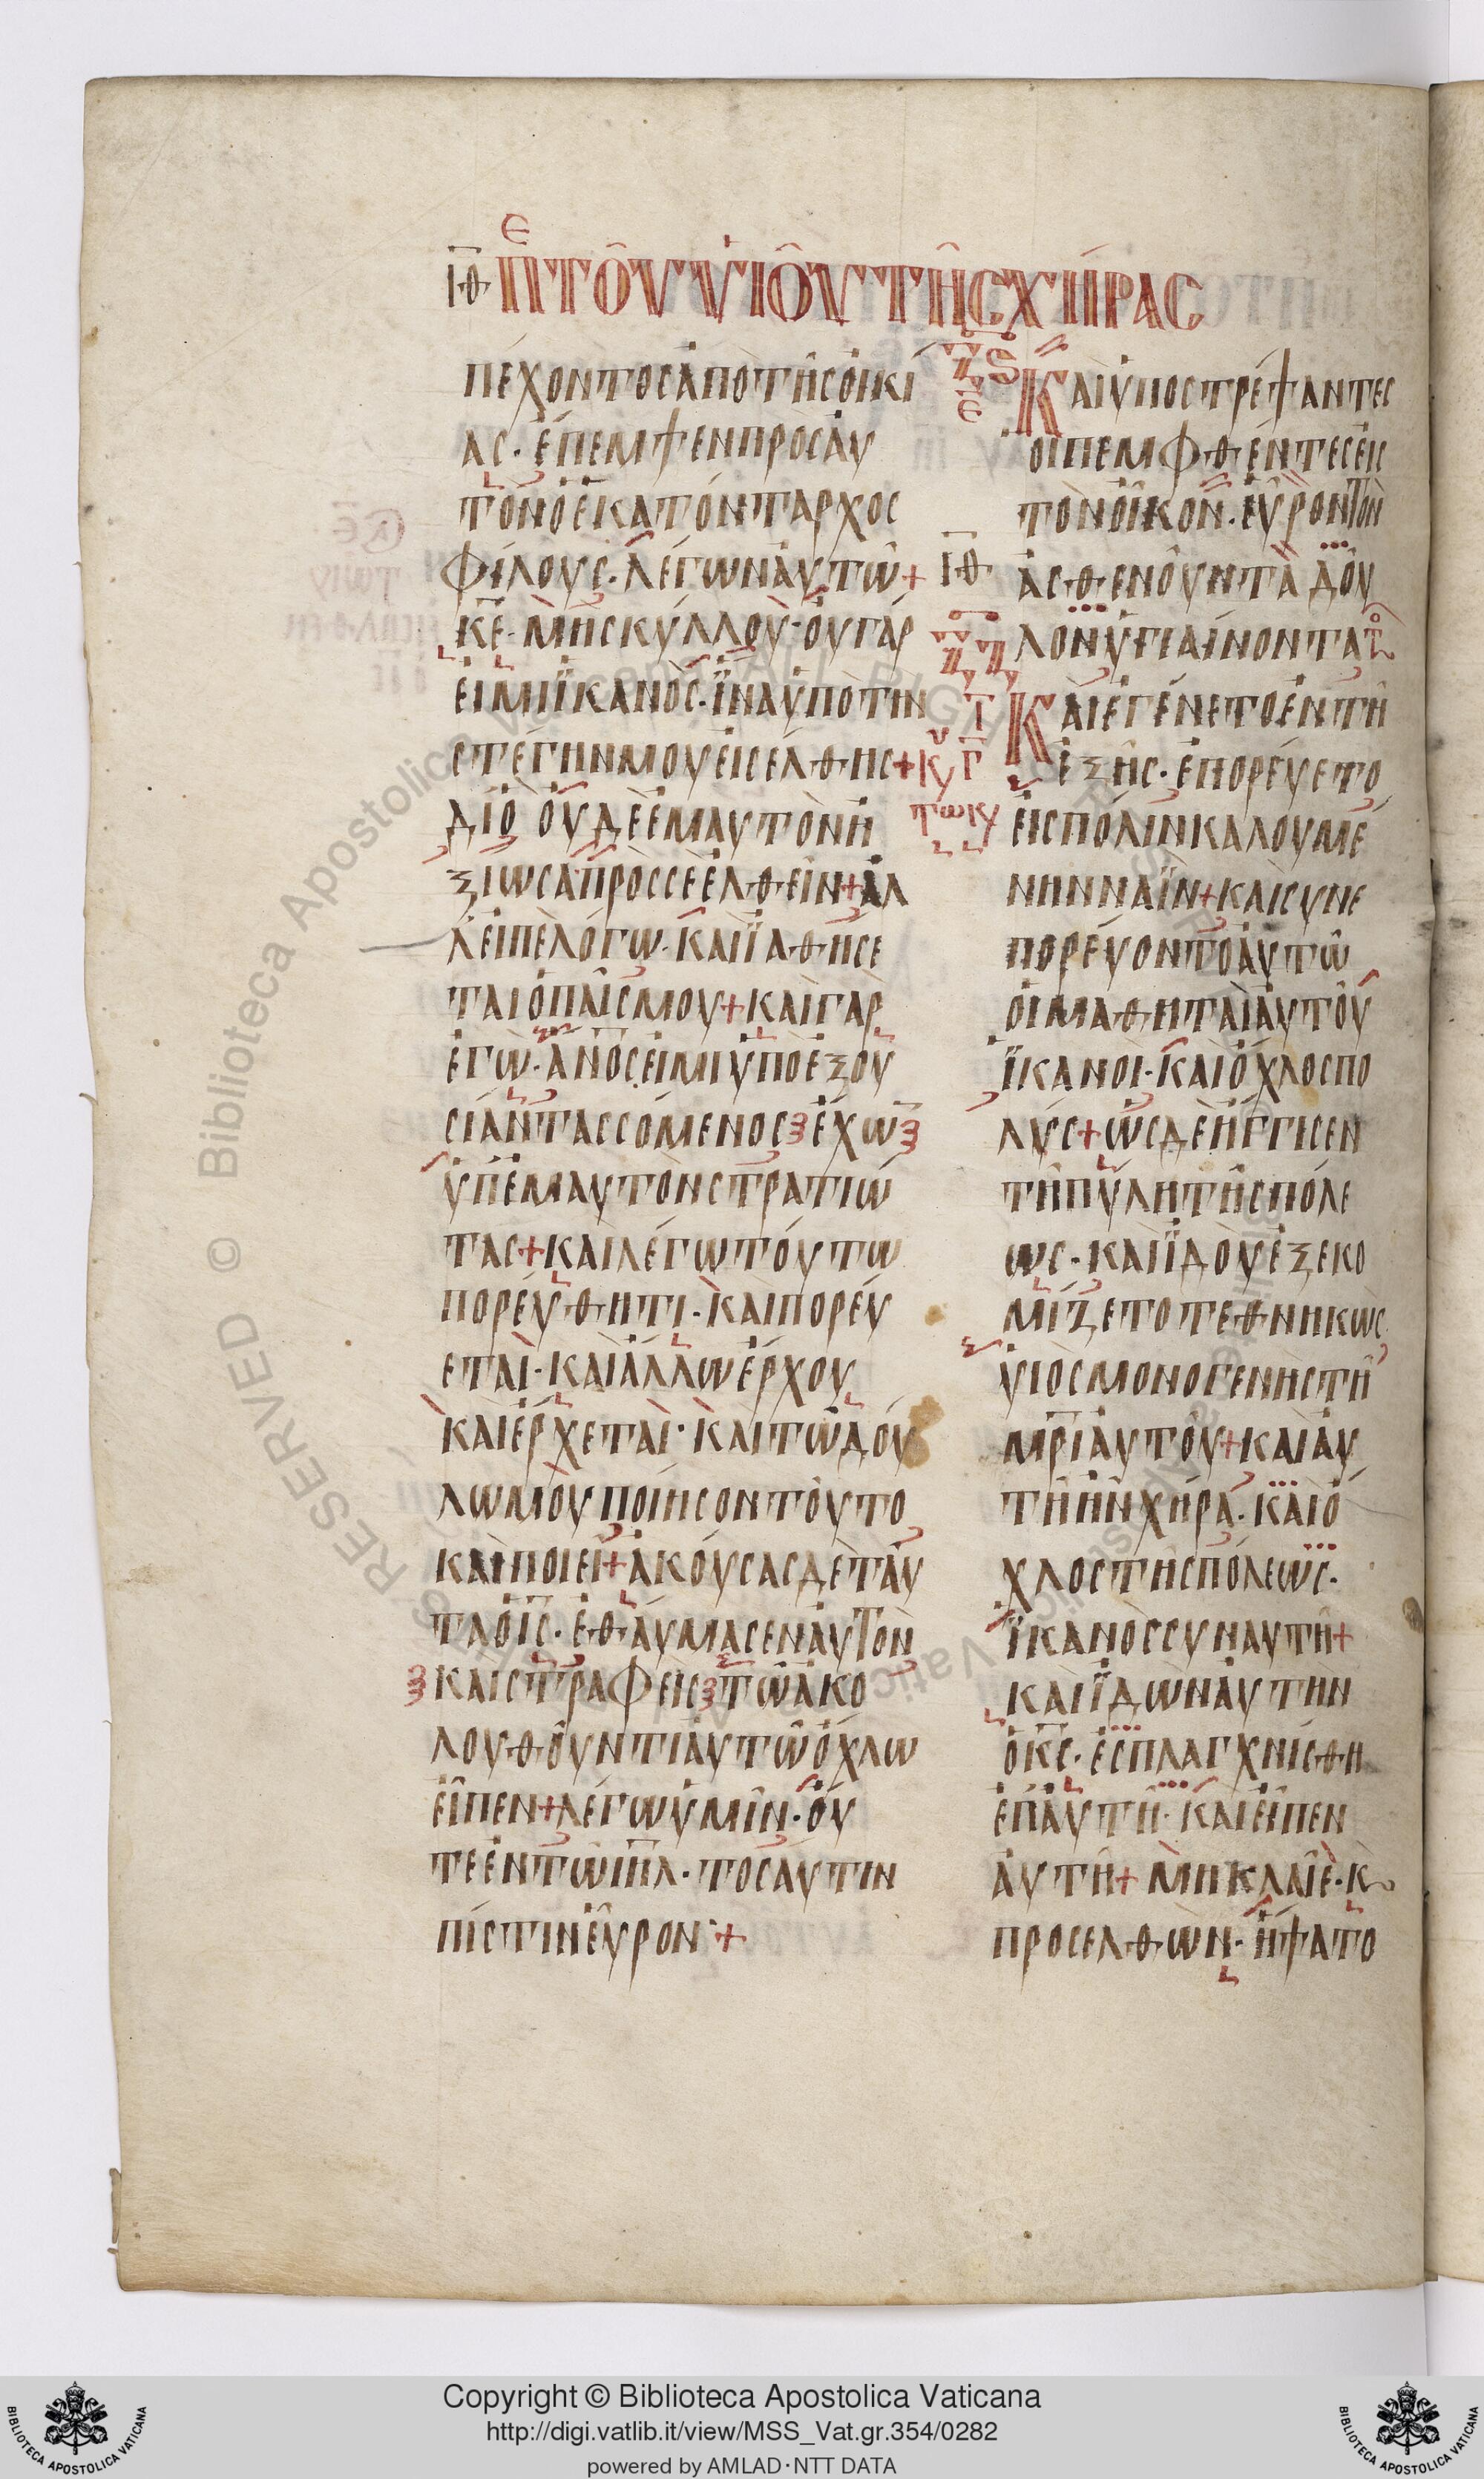 Ε
ΙΘ Π̅ ΤΟΥ ΥΙΟΥ ΤΗΣ ΧΗΡΑΣ
ΠΕΧΟΝΤΟΣ ΑΠΟ ΤΗΣ ΟΙΚΙ
ΑΣ· ΕΠΕΜΨΕΝ ΠΡΟΣ ΑΥ
ΤΟΝ Ο ΕΚΑΤΟΝΤΑΡΧΟΣ
ΦΙΛΟΥΣ· ΛΕΓΩΝ ΑΥΤΩ+
Κ̅Ε̅· ΜΗ ΣΚΥΛΛΟΥ· ΟΥ ΓΑΡ
ΕΙΜΙ ΪΚΑΝΟΣ· ΪΝΑ ΥΠΟ ΤΗΝ
ΣΤΕΓΗΝ ΜΟΥ ΕΙΣΕΛΘΗΣ+
ΔΙΟ ΟΥΔΕ ΕΜΑΥΤΟΝ Η
ΞΙΩΣΑ ΠΡΟΣ ΣΕ ΕΛΘΕΙΝ+ ΑΛ
Λ ΕΙΠΕ ΛΟΓΩ· ΚΑΙ ΪΑΘΗΣΕ
ΤΑΙ Ο ΠΑΙΣ ΜΟΥ+ ΚΑΙ ΓΑΡ
ΕΓΩ· Α̅Ν̅Ο̅Σ̅ ΕΙΜΙ ΥΠΟ ΕΞΟΥ
ΣΙΑΝ ΤΑΣΣΟΜΕΝΟΣ ΕΧΩ
ΥΠ ΕΜΑΥΤΟΝ ΣΤΡΑΤΙΩ
ΤΑΣ+ ΚΑΙ ΛΕΓΩ ΤΟΥΤΩ
ΠΟΡΕΥΘΗΤΙ· ΚΑΙ ΠΟΡΕΥ
ΕΤΑΙ· ΚΑΙ ΑΛΛΩ ΕΡΧΟΥ
ΚΑΙ ΕΡΧΕΤΑΙ· ΚΑΙ ΤΩ ΔΟΥ
ΛΩ ΜΟΥ ΠΟΙΗΣΟΝ ΤΟΥΤΟ
ΚΑΙ ΠΟΙΕΙ+ ΑΚΟΥΣΑΣ ΔΕ ΤΑΥ
ΤΑ Ο Ι̅Σ̅· ΕΘΑΥΜΑΣΕΝ ΑΥΤΟΝ
ΚΑΙ ΣΤΡΑΦΕΙΣ ΤΩ ΑΚΟ
ΛΟΥΘΟΥΝΤΙ ΑΥΤΩ ΟΧΛΩ
ΕΙΠΕΝ+ ΛΕΓΩ ΥΜΙΝ· ΟΥ
ΤΕ ΕΝ ΤΩ Ι̅Η̅Λ̅· ΤΟΣΑΥΤΙΝ
ΠΙΣΤΙΝ ΕΥΡΟΝ·+
ΚΑΙ ΥΠΟΣΤΡΕΨΑΝΤΕΣ
ΟΙ ΠΕΜΦΘΕΝΤΕΣ ΕΙΣ
ΤΟΝ ΟΙΚΟΝ· ΕΥΡΟΝ ΤΟΝ
ΙΘ ΑΣΘΕΝΟΥΝΤΑ ΔΟΥ
ΛΟΝ ΥΓΙΑΙΝΟΝΤΑ
ΚΑΙ ΕΓΕΝΕΤΟ ΕΝ ΤΗ
ΕΞΗΣ· ΕΠΟΡΕΥΕΤΟ
ΕΙΣ ΠΟΛΙΝ ΚΑΛΟΥΜΕ
ΝΗΝ ΝΑΪΝ+ ΚΑΙ ΣΥΝΕ
ΠΟΡΕΥΟΝΤΟ ΑΥΤΩ
ΟΙ ΜΑΘΗΤΑΙ ΑΥΤΟΥ
ΪΚΑΝΟΙ· ΚΑΙ ΟΧΛΟΣ ΠΟ
ΛΥΣ+ ΩΣ ΔΕ ΗΓΓΙΣΕΝ
ΤΗ ΠΥΛΗ ΤΗΣ ΠΟΛΕ
ΩΣ· ΚΑΙ ΪΔΟΥ ΕΞΕΚΟ
ΜΙΖΕΤΟ ΤΕΘΝΗΚΩΣ
ΥΙΟΣ ΜΟΝΟΓΕΝΗΣ ΤΗ
Μ̅Ρ̅Ι̅ ΑΥΤΟΥ+ ΚΑΙ ΑΥ
ΤΗ ΗΝ ΧΗΡΑ· ΚΑΙ Ο
ΧΛΟΣ ΤΗΣ ΠΟΛΕΩΣ·
ΪΚΑΝΟΣ ΣΥΝ ΑΥΤΗ+
ΚΑΙ ΪΔΩΝ ΑΥΤΗΝ
Ο Κ̅Σ̅· ΕΣΠΛΑΓΧΝΙΣΘΗ
ΕΠ ΑΥΤΗ· ΚΑΙ ΕΙΠΕΝ
ΑΥΤΗ+ ΜΗ ΚΛΑΙΕ· Κ
ΠΡΟΣΕΛΘΩΝ· ΗΨΑΤΟ
Copyright © Biblioteca Apostolica Vaticana
http://digi.vatlib.it/view/MSS_Vat.gr.354/0282
powered by AMLAD·NTT DATA
BIBLIOTECA APOSTOLICA VATICANA
BIBLIOTECA APOSTOLICA VATICANA